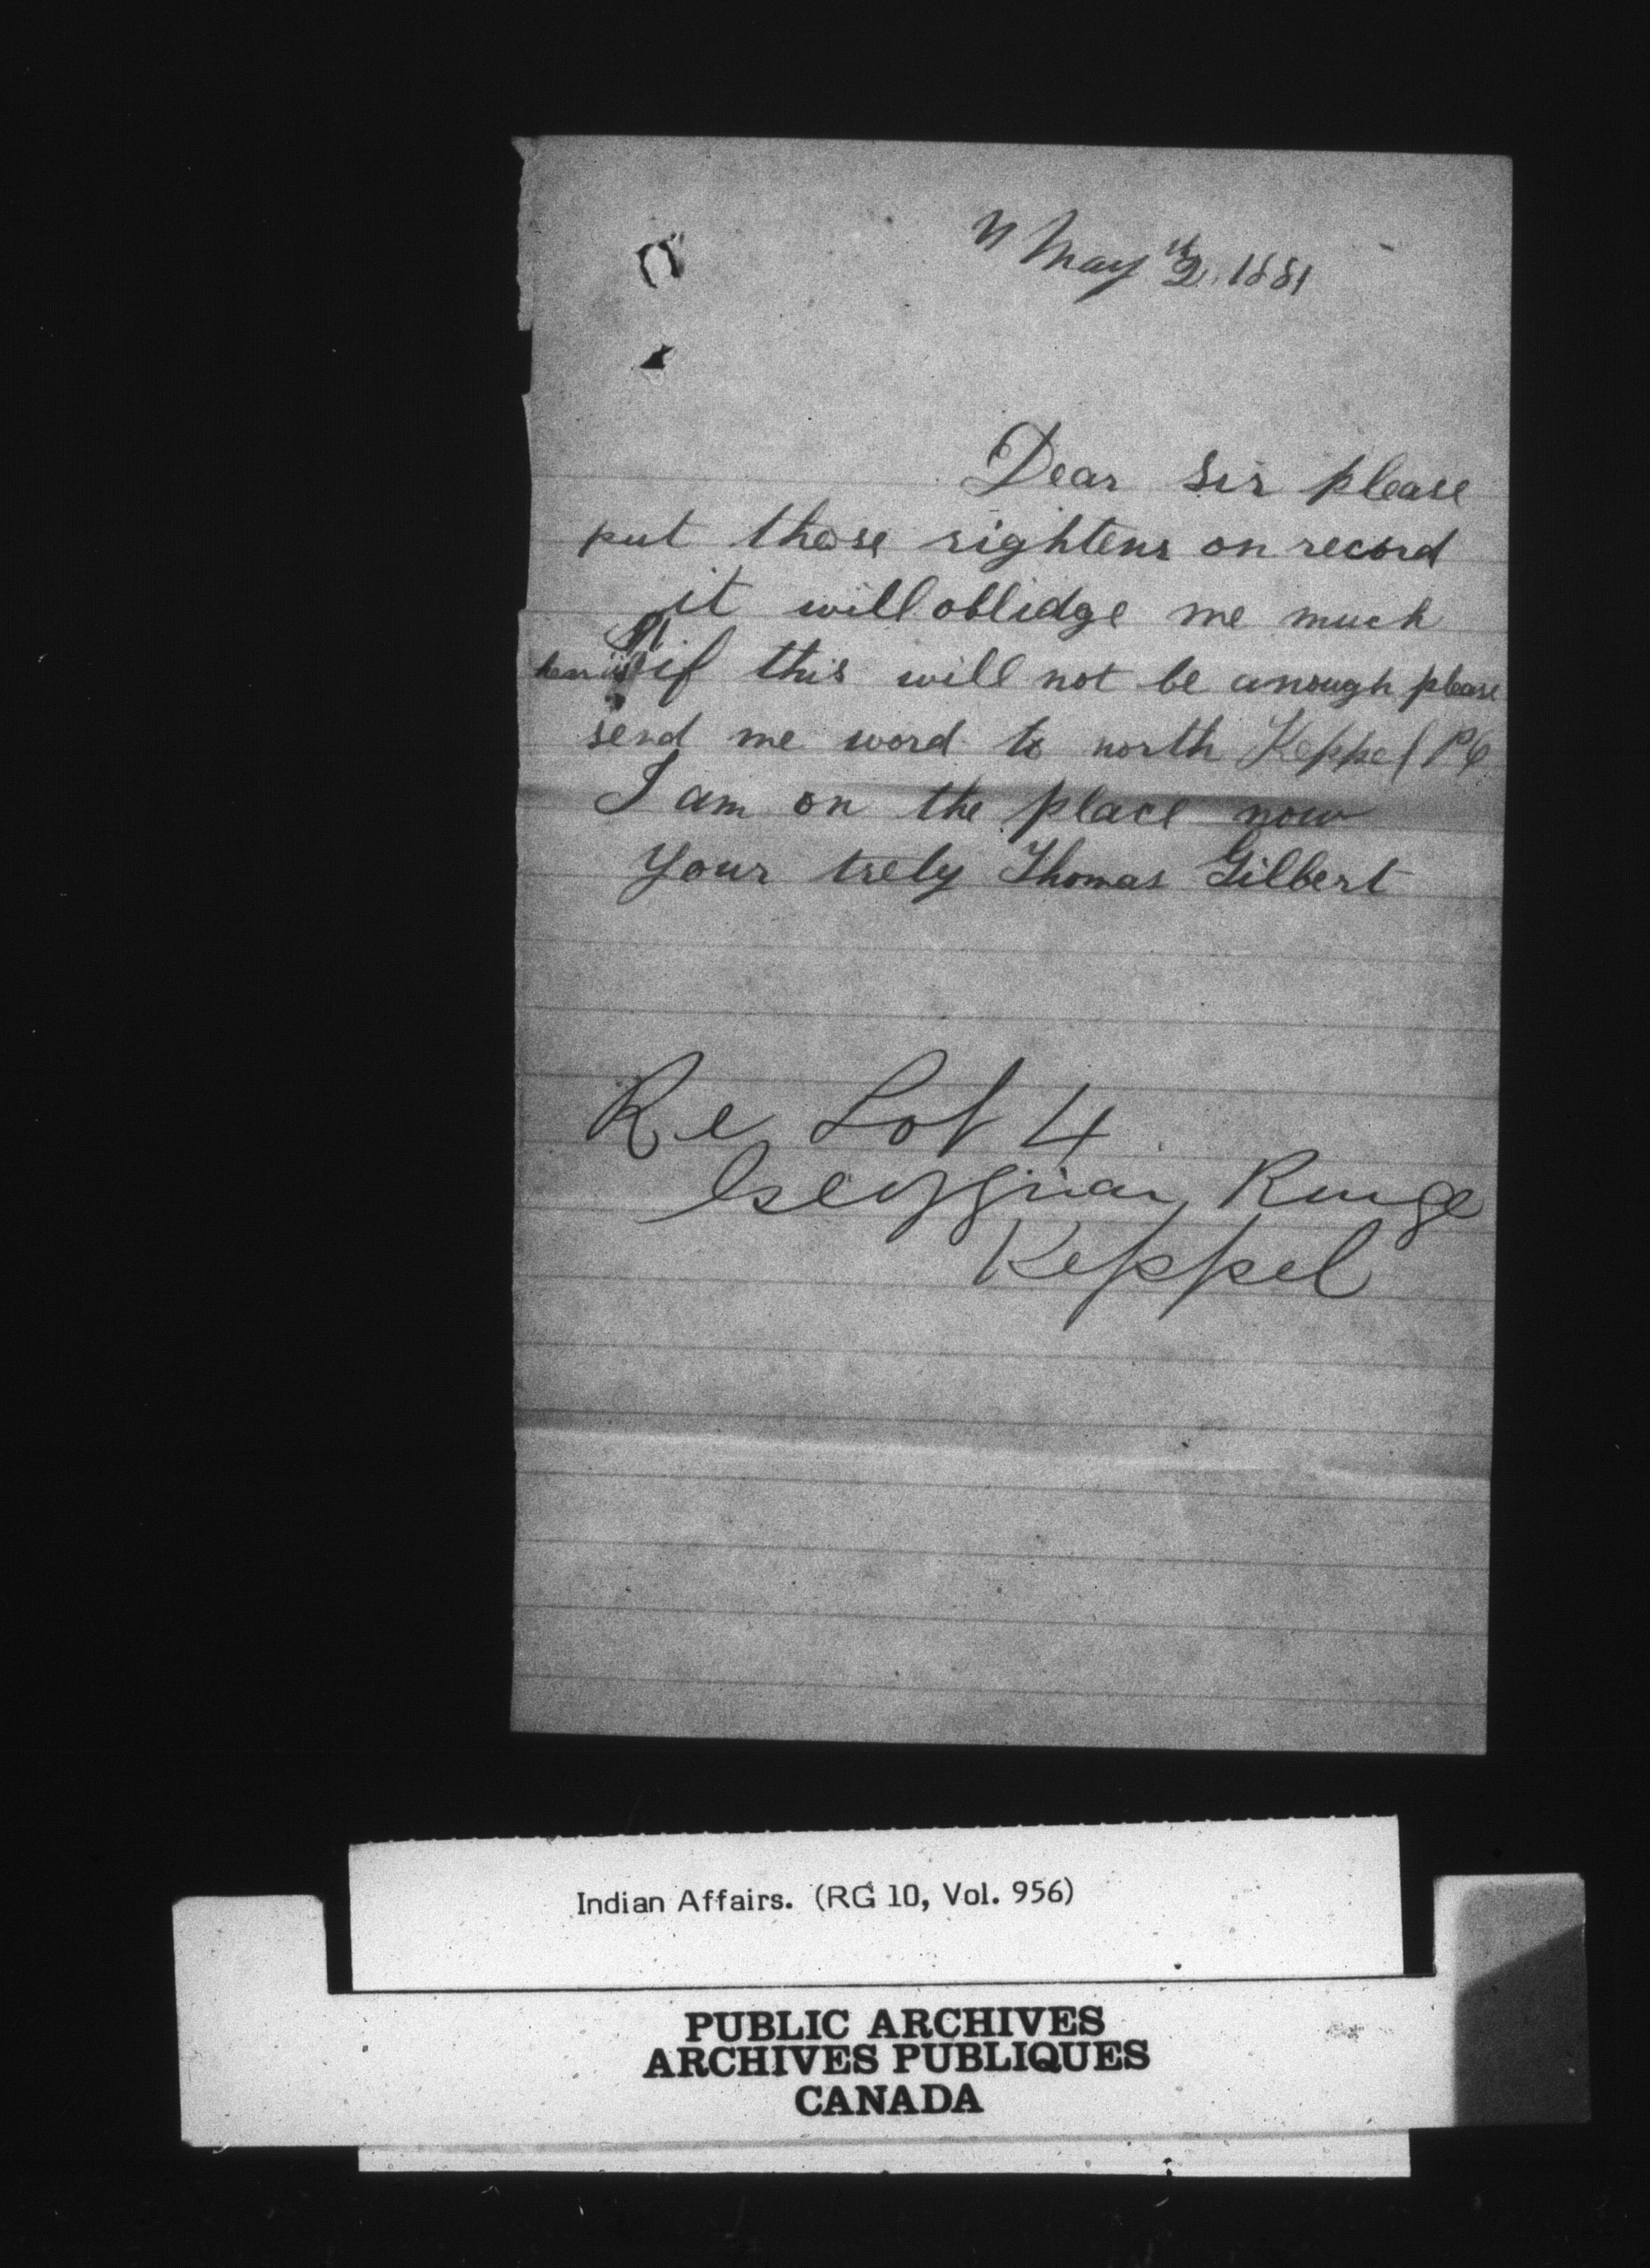 May 2 1881
Dear Sir please
put these rightens on record
it will oblidge me much
if this will not be anough please
send me word to north Keppel PO
I am on the place now
your trely Thomas Gilbert
Re Lot 4
Georgian Range
Keppel
Indian Affairs. (RG 10, Vol. 956)
PUBLIC ARCHIVES
ARCHIVES PUBLIQUES
CANADA